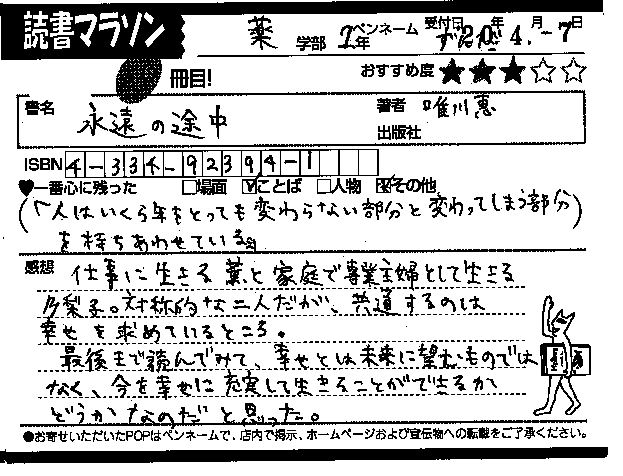 読書マラソン
薬 学部 2年 ペンネーム 受付日 年 4.月-7日
冊目!
おすすめ度 ★★★☆☆
書名 永遠の途中
著者 唯川恵
出版社
ISBN 4-334-92394-1
♥一番心に残った □場面 ☑ことば □人物 ☑その他
(「人はいくら年をとっても変わらない部分と変わってしまう部分)
を持ちあわせている」
感想 仕事に生きる薫と家庭で専業主婦として生きる
乃梨子。対称的な二人だが、共通するのは
幸せを求めているところ。
最後まで読んでみて、幸せとは未来に望むものでは
なく、今を幸せに充実して生きることができるか
どうかなのだと思った。
●お寄せいただいたPOPはペンネームで、店内で掲示、ホームページおよび宣伝物への転載をご了承ください。